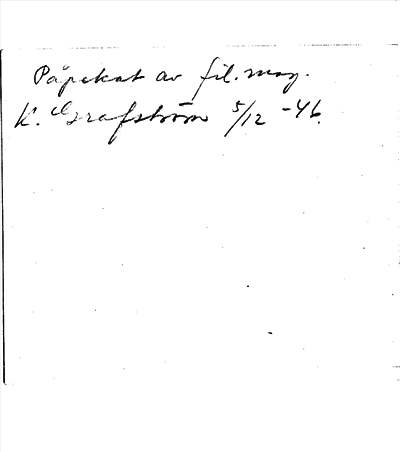 Påpekat av fil. mag.
K. Grafström 5/12 -46.